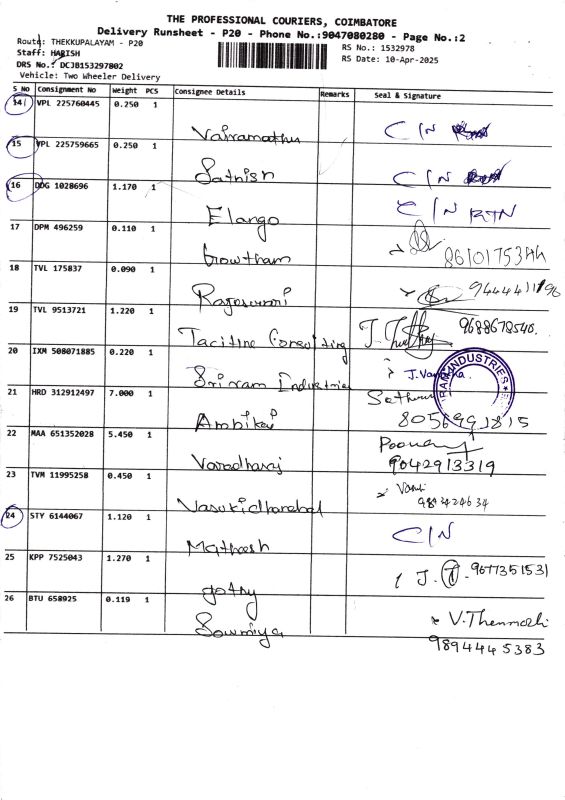 THE PROFESSIONAL COURIERS, COIMBATORE
Delivery Runsheet - P20 - Phone No.:9047080280 - Page No.:2
Route: THEKKUPALAYAM - P20
RS No.: 1532978
Staff: HARISH
RS Date: 10-Apr-2025
DRS No.: DCJB153297802
Vehicle: Two Wheeler Delivery
S No Consignment No Weight PCS Consignee Details Remarks Seal & Signature
14 VPL 225760445 0.250 1
Vairamathu C/N
15 VPL 225759665 0.250 1
Sathish C/N
16 DDG 1028696 1.170 1
Elango C/N RTN
17 DPM 496259 0.110 1
Gowtham 86101753
18 TVL 175837 0.090 1
19 TVL 9513721 1.220 1
9688678540.
20 IXM 508071885 0.220 1
Sriram Industries
RAM INDUSTRIES
21 HRD 312912497 7.000 1
Ambika 8056991815
22 MAA 651352028 5.450 1
Varadharaj 9042913319
23 TVM 11995258 0.450 1
24 STY 6144067 1.120 1
C/N
25 KPP 7525043 1.270 1
J. 9677351531
26 BTU 658925 0.119 1
Sowmiya V.Thenmozhi
9894445383